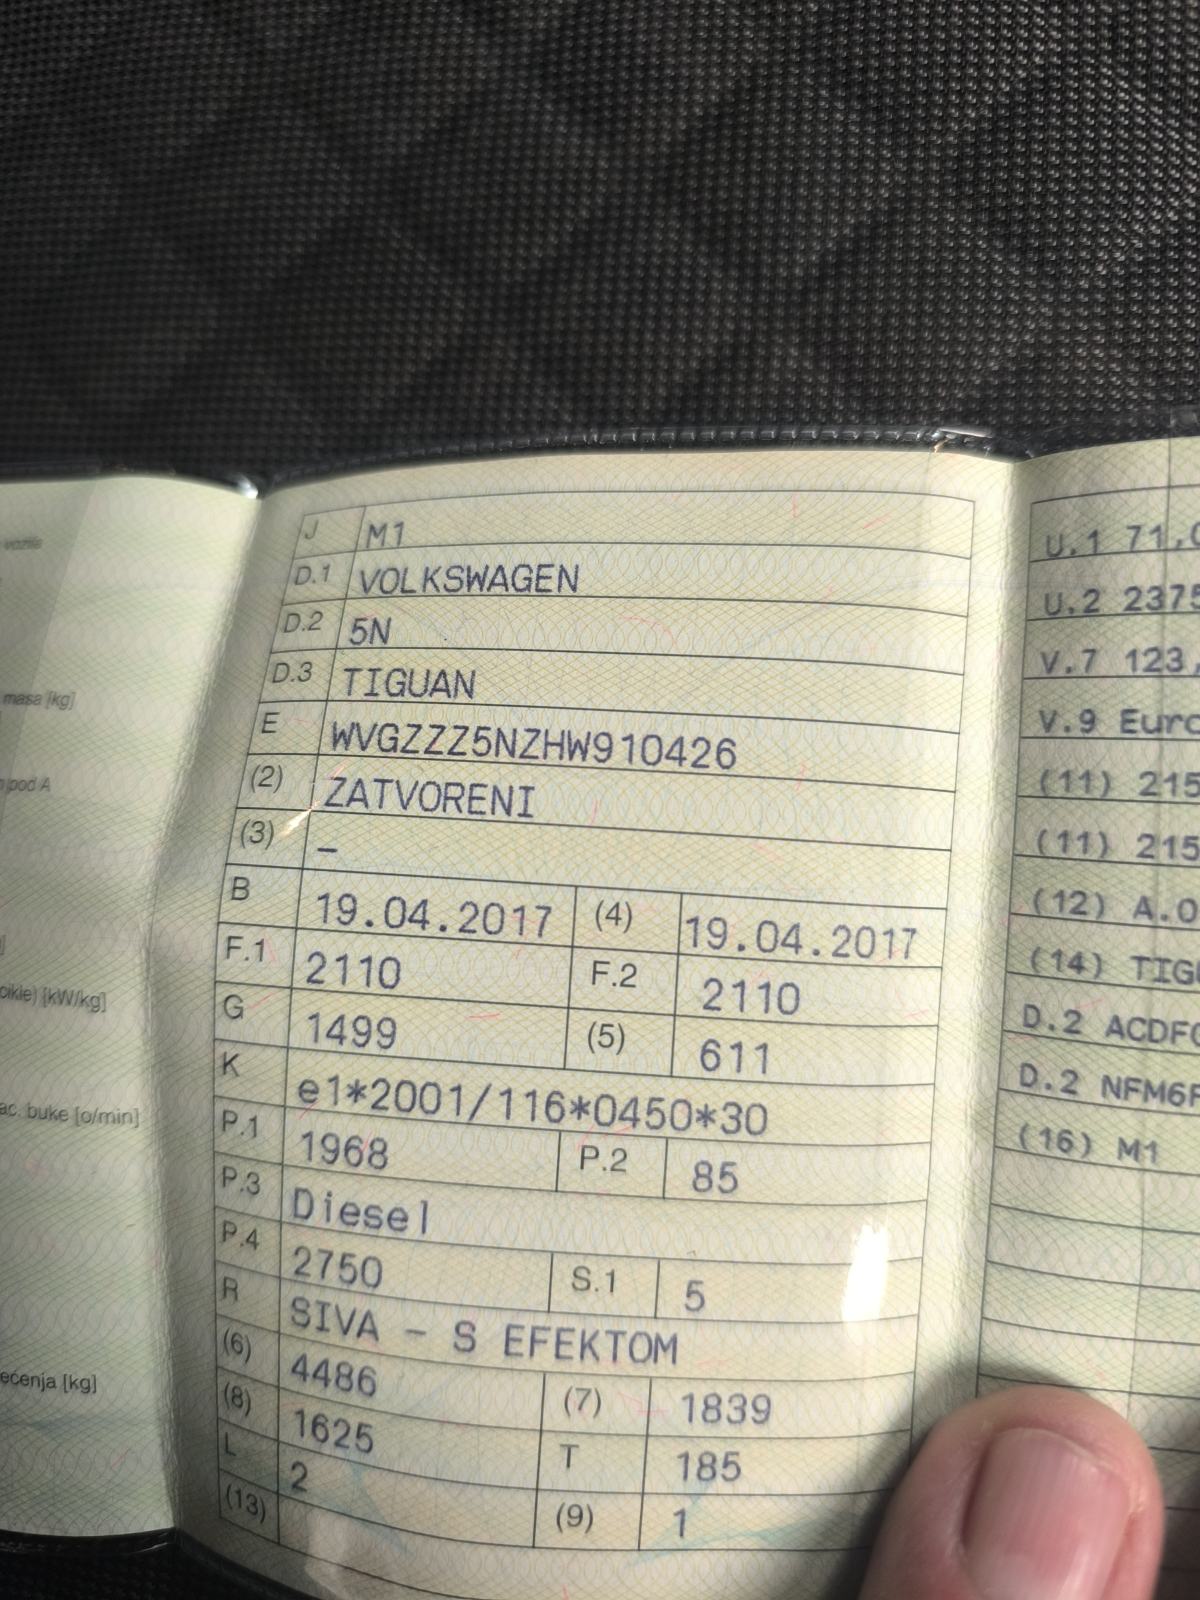 vozila
masa [kg]
pod A
[kW/kg]
buke [o/min]
[kg]
J M1
D.1 VOLKSWAGEN
D.2 5N
D.3 TIGUAN
E WVGZZZ5NZHW910426
(2) ZATVORENI
(3) –
B 19.04.2017 (4) 19.04.2017
F.1 2110 F.2 2110
G 1499 (5) 611
K e1*2001/116*0450*30
P.1 1968 P.2 85
P.3 Diesel
P.4 2750 S.1 5
R SIVA – S EFEKTOM
(6) 4486 (7) 1839
(8) 1625 T 185
L 2 (9) 1
(13)
U.1 71,0
U.2 2375
V.7 123,
V.9 Euro
(11) 215
(11) 215
(12) A.0
(14) TIG
D.2 ACDF
D.2 NFM6F
(16) M1